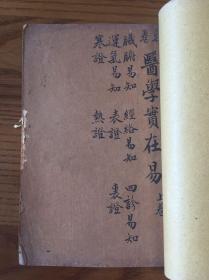 卷
醫學實在易 上卷
臟腑易知 經絡易知 四診易知
運氣易知 表證 裏證
寒證 熱證